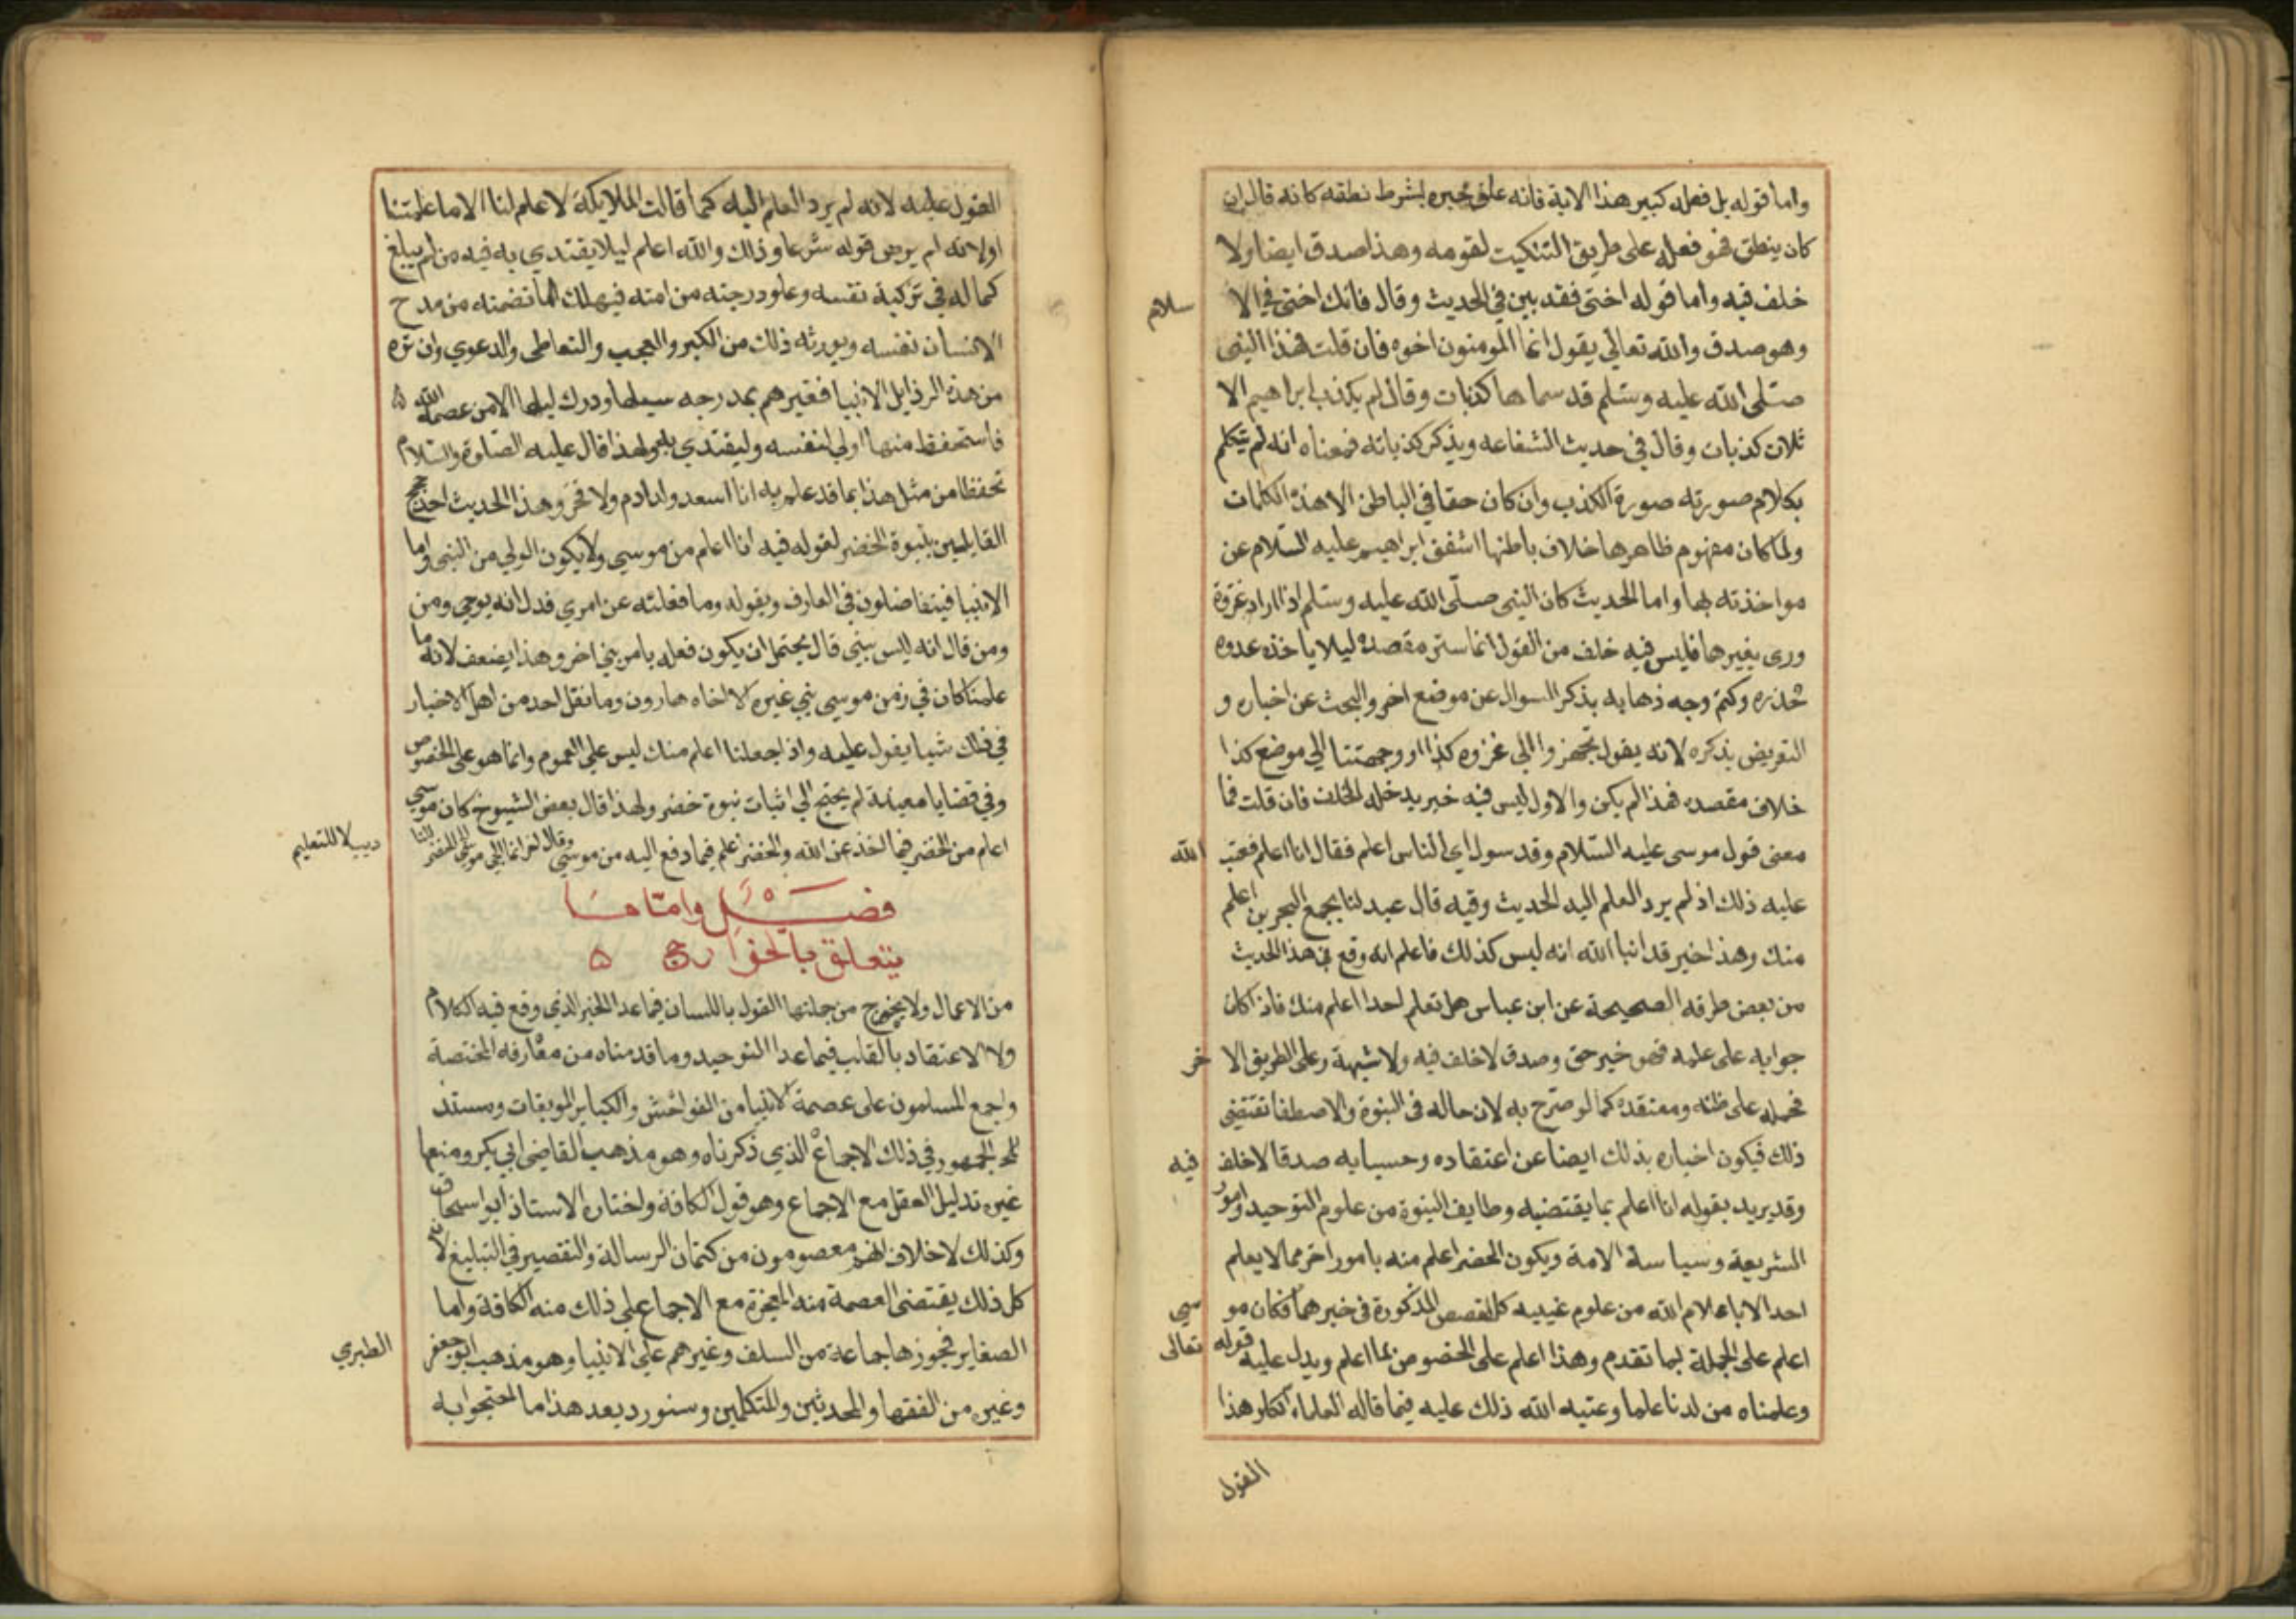 واما قوله بل فعله كبير هذا الاية فانه علق خبره بشرط نطقه كانه قال ان
كان ينطق فهو فعله على طريق التنكيت لقومه وهذا صدق ايضا ولا
خلف فيه واما قوله اختي فقد بين في الحديث وقال فانك اختي في الا سلام
وهو صدق والله تعالي يقول انما المومنون اخوه فان قلت فهذا النبي
صلى الله عليه وسلم قد سماها كذبات وقال لم يكذب ابراهيم الا
ثلاث كذبات وقال في حديث الشفاعه ويذكر كذباته فمعناه انه لم يتكلم
بكلام صورته صورة الكذب وان كان حقا في الباطن الا هذه الكلمات
ولما كان مفهوم ظاهرها خلاف باطنها اشفق ابراهيم عليه السلام عن
مواخذته بها واما الحديث كان النبي صلى الله عليه وسلم اذا اراد غزوة
ورى بغيرها فليس فيه خلف من القول انما ستر مقصده ليلا ياخذ عدوه
حذره وكتم وجه ذهابه بذكر السوال عن موضع اخر والبحث عن اخباره و
التعريض بذكره لانه يقول تجهزوا الي غزوه كذا او وجهتنا الي موضع كذا
خلاف مقصده فهذا لم يكن والاول ليس فيه خبر يدخله الخلف فان قلت فما
معنى قول موسى عليه السلام وقد سول اي الناس اعلم فقال انا اعلم فعتب الله
عليه ذلك اذ لم يرد العلم اليه الحديث وفيه قال عبد لنا بمجمع البحرين اعلم
منك وهذا خبر قد انبا الله انه ليس كذلك فاعلم انه وقع في هذا الحديث
من بعض طرقه الصحيحة عن ابن عباس هل تعلم احدا اعلم منك فاذا كان
جوابه على علمه فهو خبر حق وصدق لا خلف فيه ولا شبهة وعلى الطريق الا خر
فمحمله على ظنه ومعتقده كما لو صرح به لان حاله في النبوة والاصطفا تقتضي
ذلك فيكون اخباره بذلك ايضا عن اعتقاده وحسبانه صدقا لا خلف فيه
وقد يريد بقوله انا اعلم بما يقتضيه وظايف النبوة من علوم التوحيد وامور
الشريعة وسياسة الامة ويكون الخضر اعلم منه بامور اخر مما لا يعلم
احد الا باعلام الله من علوم غيبيه كالقصص المذكورة في خبرهما فكان مو سى
اعلم على الجملة بما تقدم وهذا اعلم على الخصوص بما اعلم ويدل عليه قوله تعالى
وعلمناه من لدنا علما وعتبه الله ذلك عليه فيما قاله العلما انكار هذا
القول
القول عليه لانه لم يرد العلم اليه كما قالت الملايكة لا علم لنا الا ما علمتنا
اولانه لم يرض قوله شرعا وذلك والله اعلم ليلا يقتدي به فيه من لم يبلغ
كماله في تزكية نفسه وعلو درجته من امته فيهلك لما تضمنه من مدح
الانسان نفسه ويورثه ذلك من الكبر والعجب والتعاطي والدعوي وان نزه
من هذه الرذايل الانبيا فغيرهم بمدرجه سيلها ودرك ليلها الا من عصمه الله
فاستحفظ منها اولي لنفسه وليقتدي به ولهذا قال عليه الصلوة والسلام
تحفظا من مثل هذا بما قد علم به انا اسعد ولد ادم ولا فخر وهذا الحديث احد حجج
القايليين بنبوة الخضر لقوله فيه انا اعلم من موسي ولا يكون الولي من النبي واما
الانبيا فيتفاضلون في العارف وبقوله وما فعلته عن امري فدل انه يوحي ومن
ومن قال انه ليس بنبي قال يحتمل ان يكون فعله بامر نبي اخر وهذا يضعف لانه ما
علمنا كان في زمن موسي نبي غيره الا اخاه هارون وما نقل احد من اهل الاخبار
في ذلك شيا يقول عليه واذا جعلنا اعلم منك ليس علي العموم وانما هو على الخصوص
وفي قضايا معينة لم يحتج الي اثبات نبوة خضر ولهذا قال بعض الشيوخ كان موسي
اعلم من الخضر فيما اخذ عن الله والخضر اعلم فيما دفع اليه من موسي وقال اخر انما الجي موسي الي الخضر للتا ديب لا للتعليم
فصل واما ما
يتعلق بالجوارح
من الاعمال ولا يخرج من جملتها القول باللسان فيما عدا الخبر الذي وقع فيه الكلام
ولا الاعتقاد بالقلب فيما عدا التوحيد وما قدمناه من معارفه المختصة
واجمع المسلمون على عصمة الانبيا من الفواحش والكباير الموبقات ومستند
الجمهور في ذلك الاجماع الذي ذكرناه وهو مذهب القاضي ابي بكر ومنعها
غيره بدليل العقل مع الاجماع وهو قول الكافة واختاره الاستاذ ابو اسحاق
وكذلك لا خلاف انهم معصومون من كتمان الرسالة والتقصير في التبليغ لان
كل ذلك يقتضي العصمة منه المعجزة مع الاجماع علي ذلك منه الكافة واما
الصغاير فجوزها جماعة من السلف وغيرهم علي الانبيا وهو مذهب ابو جعفر الطبري
وغيره من الفقها والمحدثين والمتكلمين وسنورد بعد هذا ما احتجوا به